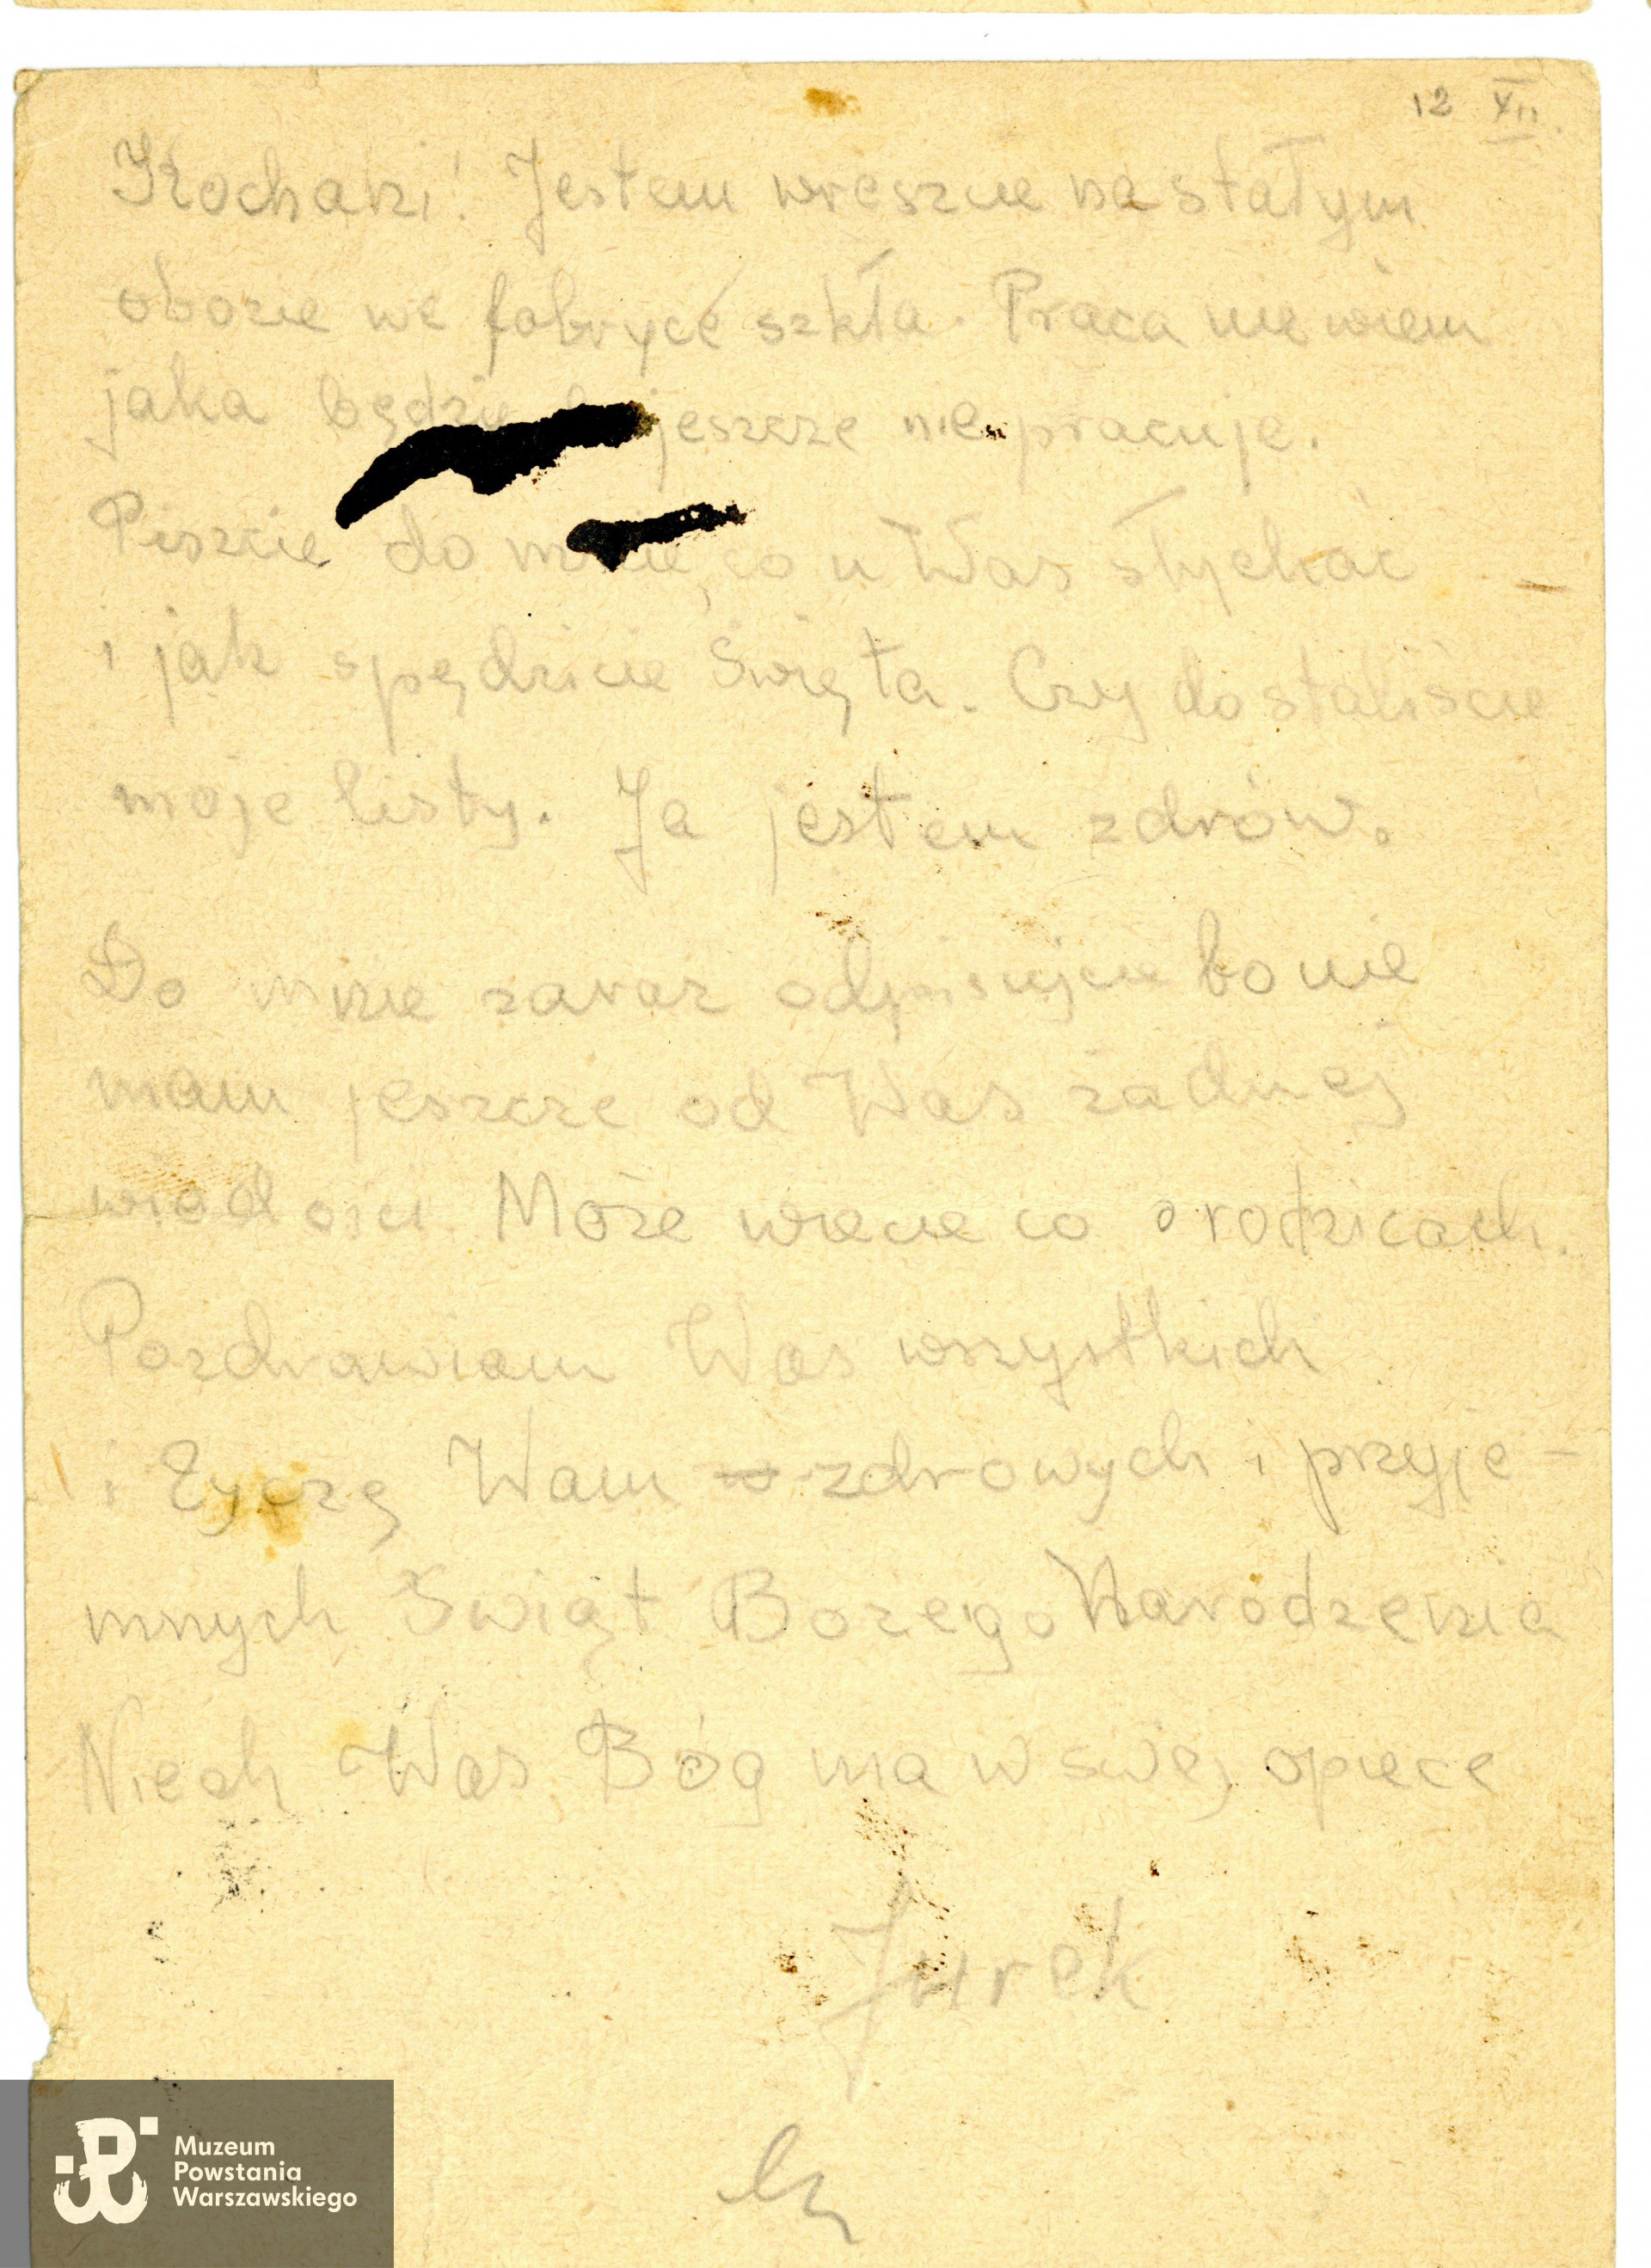 12 XII.
Kochani! Jestem wreszcie na stałym
obozie we fabryce szkła. Praca nie wiem
jaka będzie bo jeszcze nie pracuje.
Piszcie do mnie, co u Was słychać
i jak spędzicie Święta. Czy dostaliście
moje listy. Ja jestem zdrów.
Do mnie zaraz odpisujcie bo nie
mam jeszcze od Was żadnej
wiadości. Może wiecie co o rodzicach.
Pozdrawiam Was wszystkich
i Życzę Wam zdrowych i przyje-
mnych Świąt Bożego Narodzenia
Niech Was Bóg ma w swej opiece
Jurek
Muzeum
Powstania
Warszawskiego